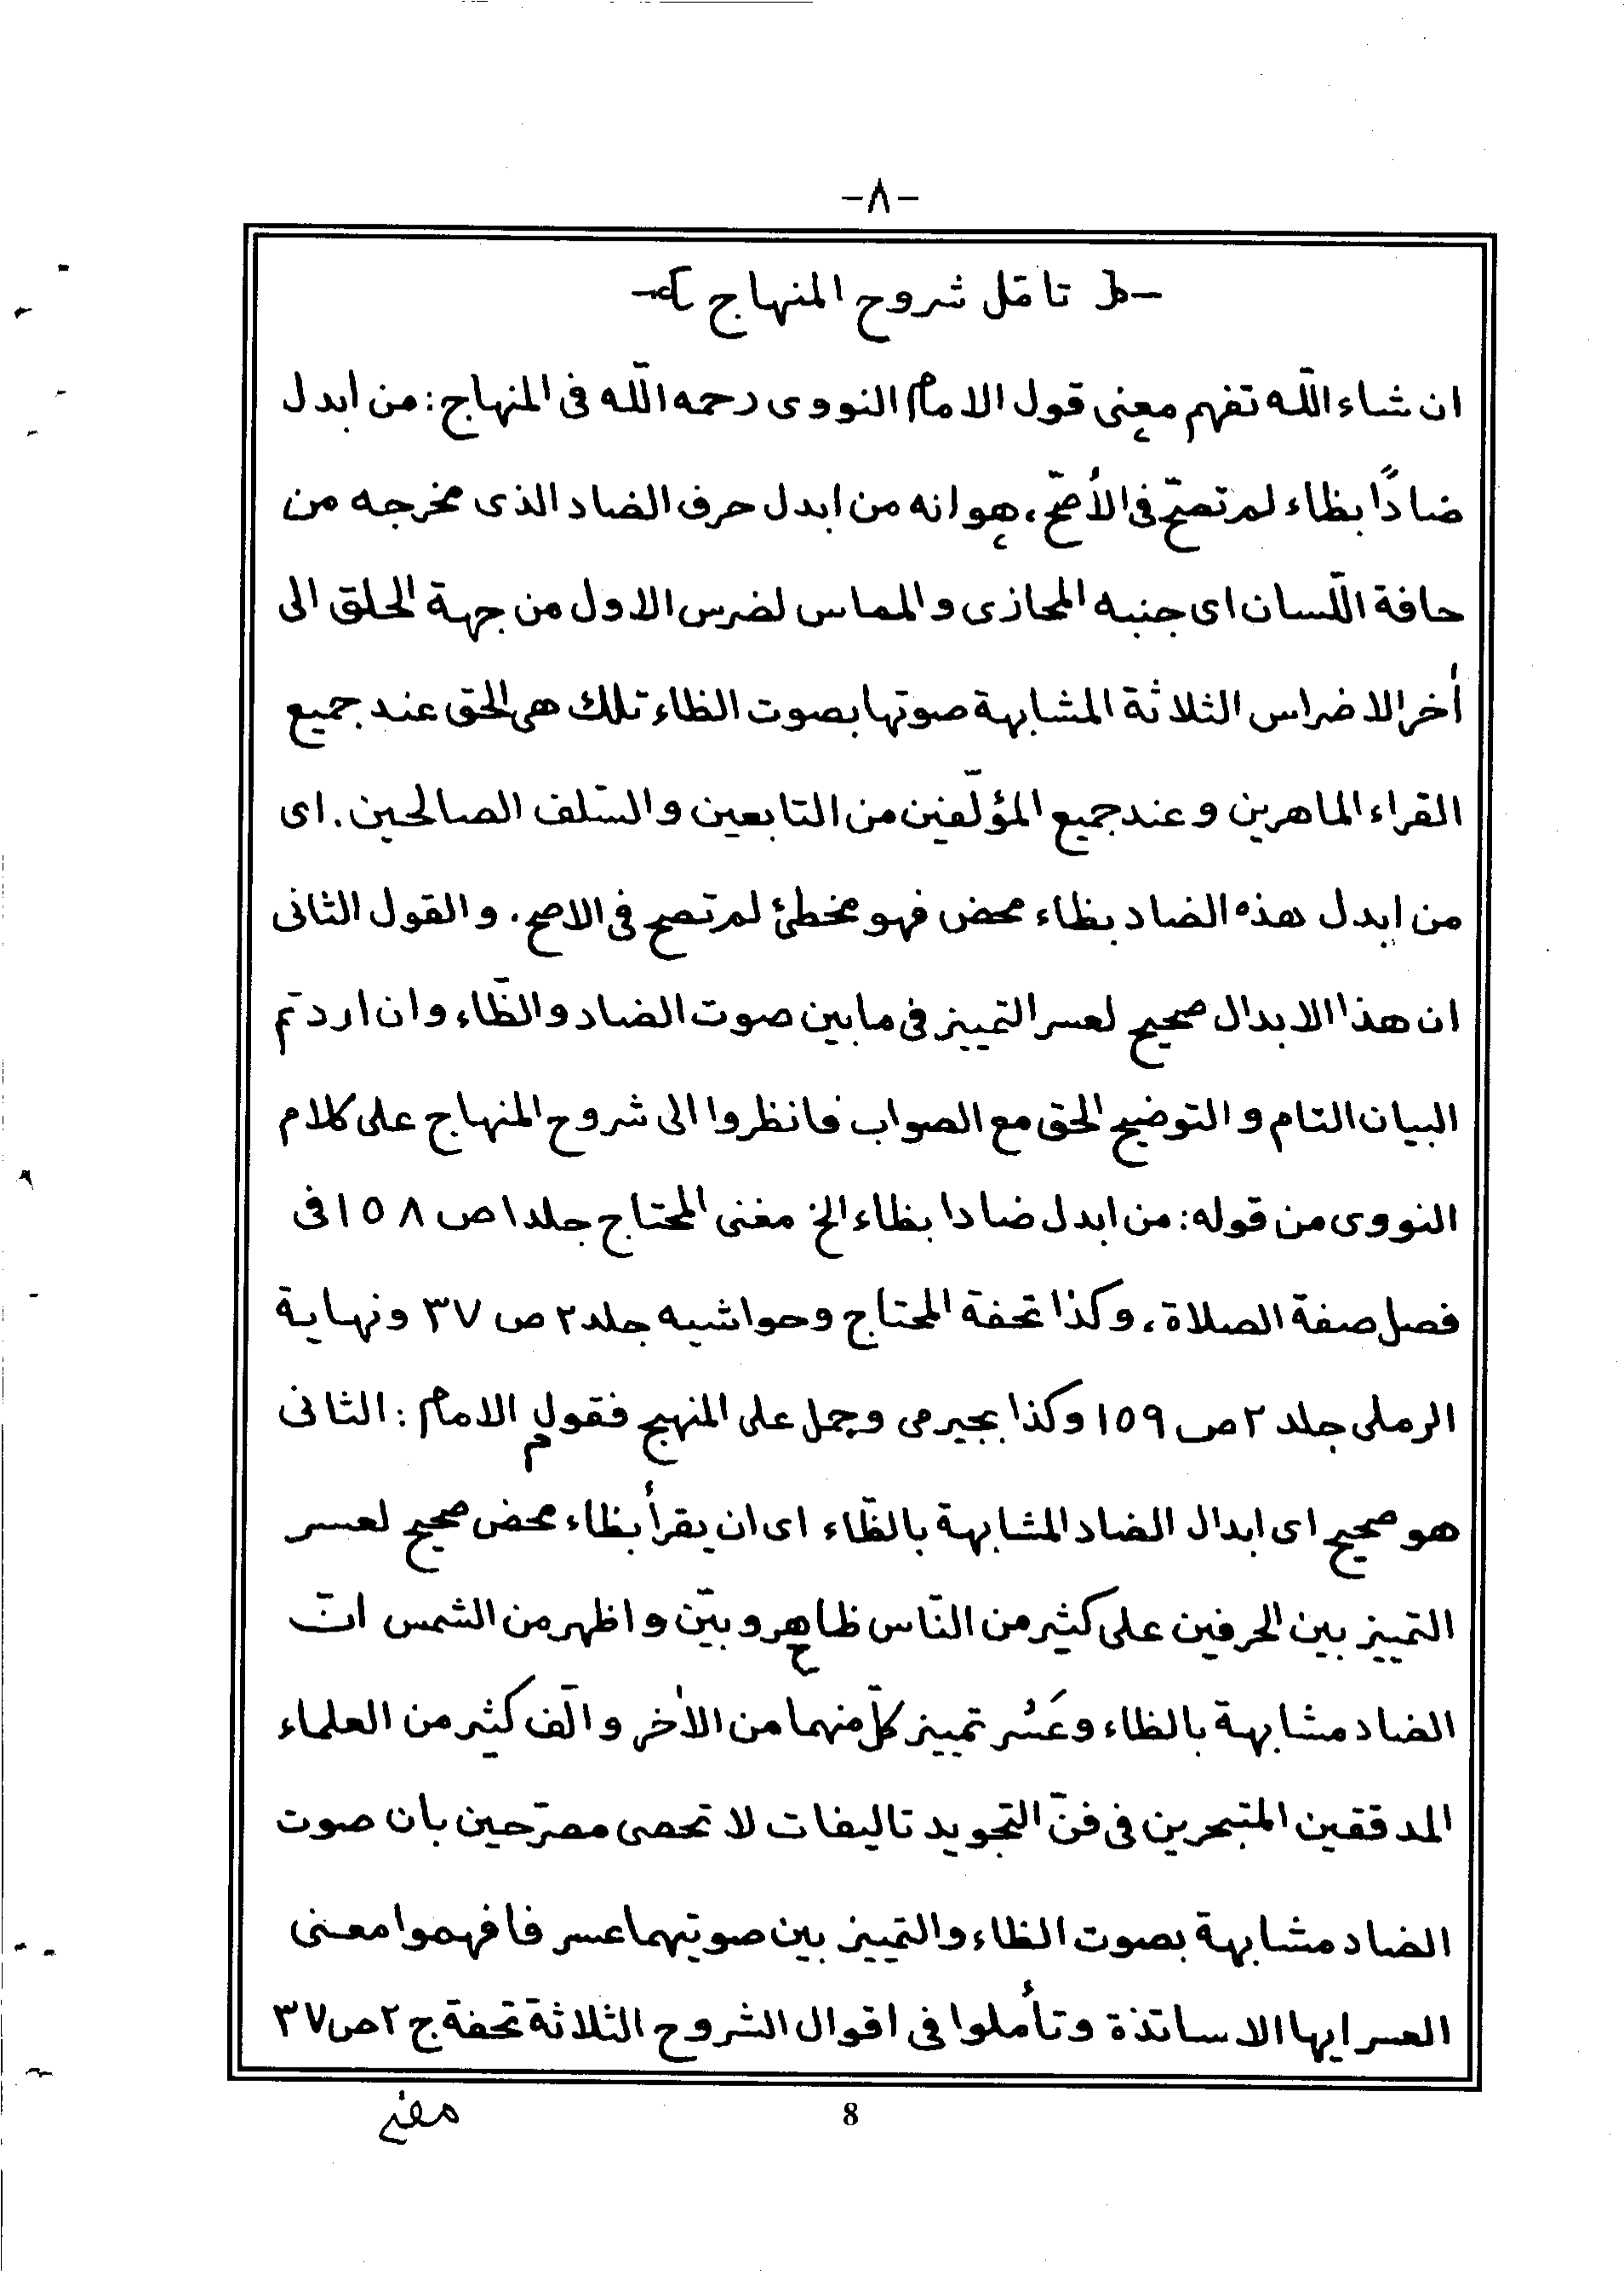 -٨-
تامّل شروح المنهاج
ان شاء اللّه تفهم معنى قول الامام النووى رحمه اللّه فى المنهاج: من ابدل
ضادًا بظاء لم تصحّ فى الأصحّ، هو انه من ابدل حرف الضاد الذى مخرجه من
حافة اللّسان اى جنبه المحازى و المماس لضرس الاول من جهة الحلق الى
أخر الاضراس الثلاثة المشابهة صوتها بصوت الظاء تلك هى الحق عند جميع
القراء الماهرين و عند جميع المؤلّفين من التابعين و السّلف الصالحين. اى
من ابدل هذه الضاد بظاء محض فهو مخطئ لم تصح فى الاصح. و القول الثانى
ان هذا الابدال صحيح لعسر التمييز فى ما بين صوت الضاد و الظّاء و ان اردتم
البيان التام و التوضيح الحق مع الصواب فانظروا الى شروح المنهاج على كلام
النووى من قوله: من ابدل ضادا بظاء الخ مغنى المحتاج جلد ١ ص ١٥٨ فى
فصل صفة الصلاة، وكذا تحفة المحتاج وحواشيه جلد ٢ ص ٣٧ ونهاية
الرملى جلد ٢ ص ١٥٩ وكذا بجيرمى وجمل على المنهج فقول الامام: الثانى
هو صحيح اى ابدال الضاد المشابهة بالظّاء اى ان يقرأ بظاء محض صحيح لعسر
التمييز بين الحرفين على كثير من النّاس ظاهر و بيّن و اظهر من الشمس انّ
الضاد مشابهة بالظاء و عَسُر تمييز كلّ منهما من الأخر و الّف كثير من العلماء
المدققين المتبحرين فى فنّ التجويد تاليفات لا تحصى مصرّحين بان صوت
الضاد مشابهة بصوت الظاء و التمييز بين صوتيهما عسر فافهموا معنى
العسر ايها الاساتذة و تأملوا فى اقوال الشروح الثلاثة تحفة ج ٢ ص ٣٧
8